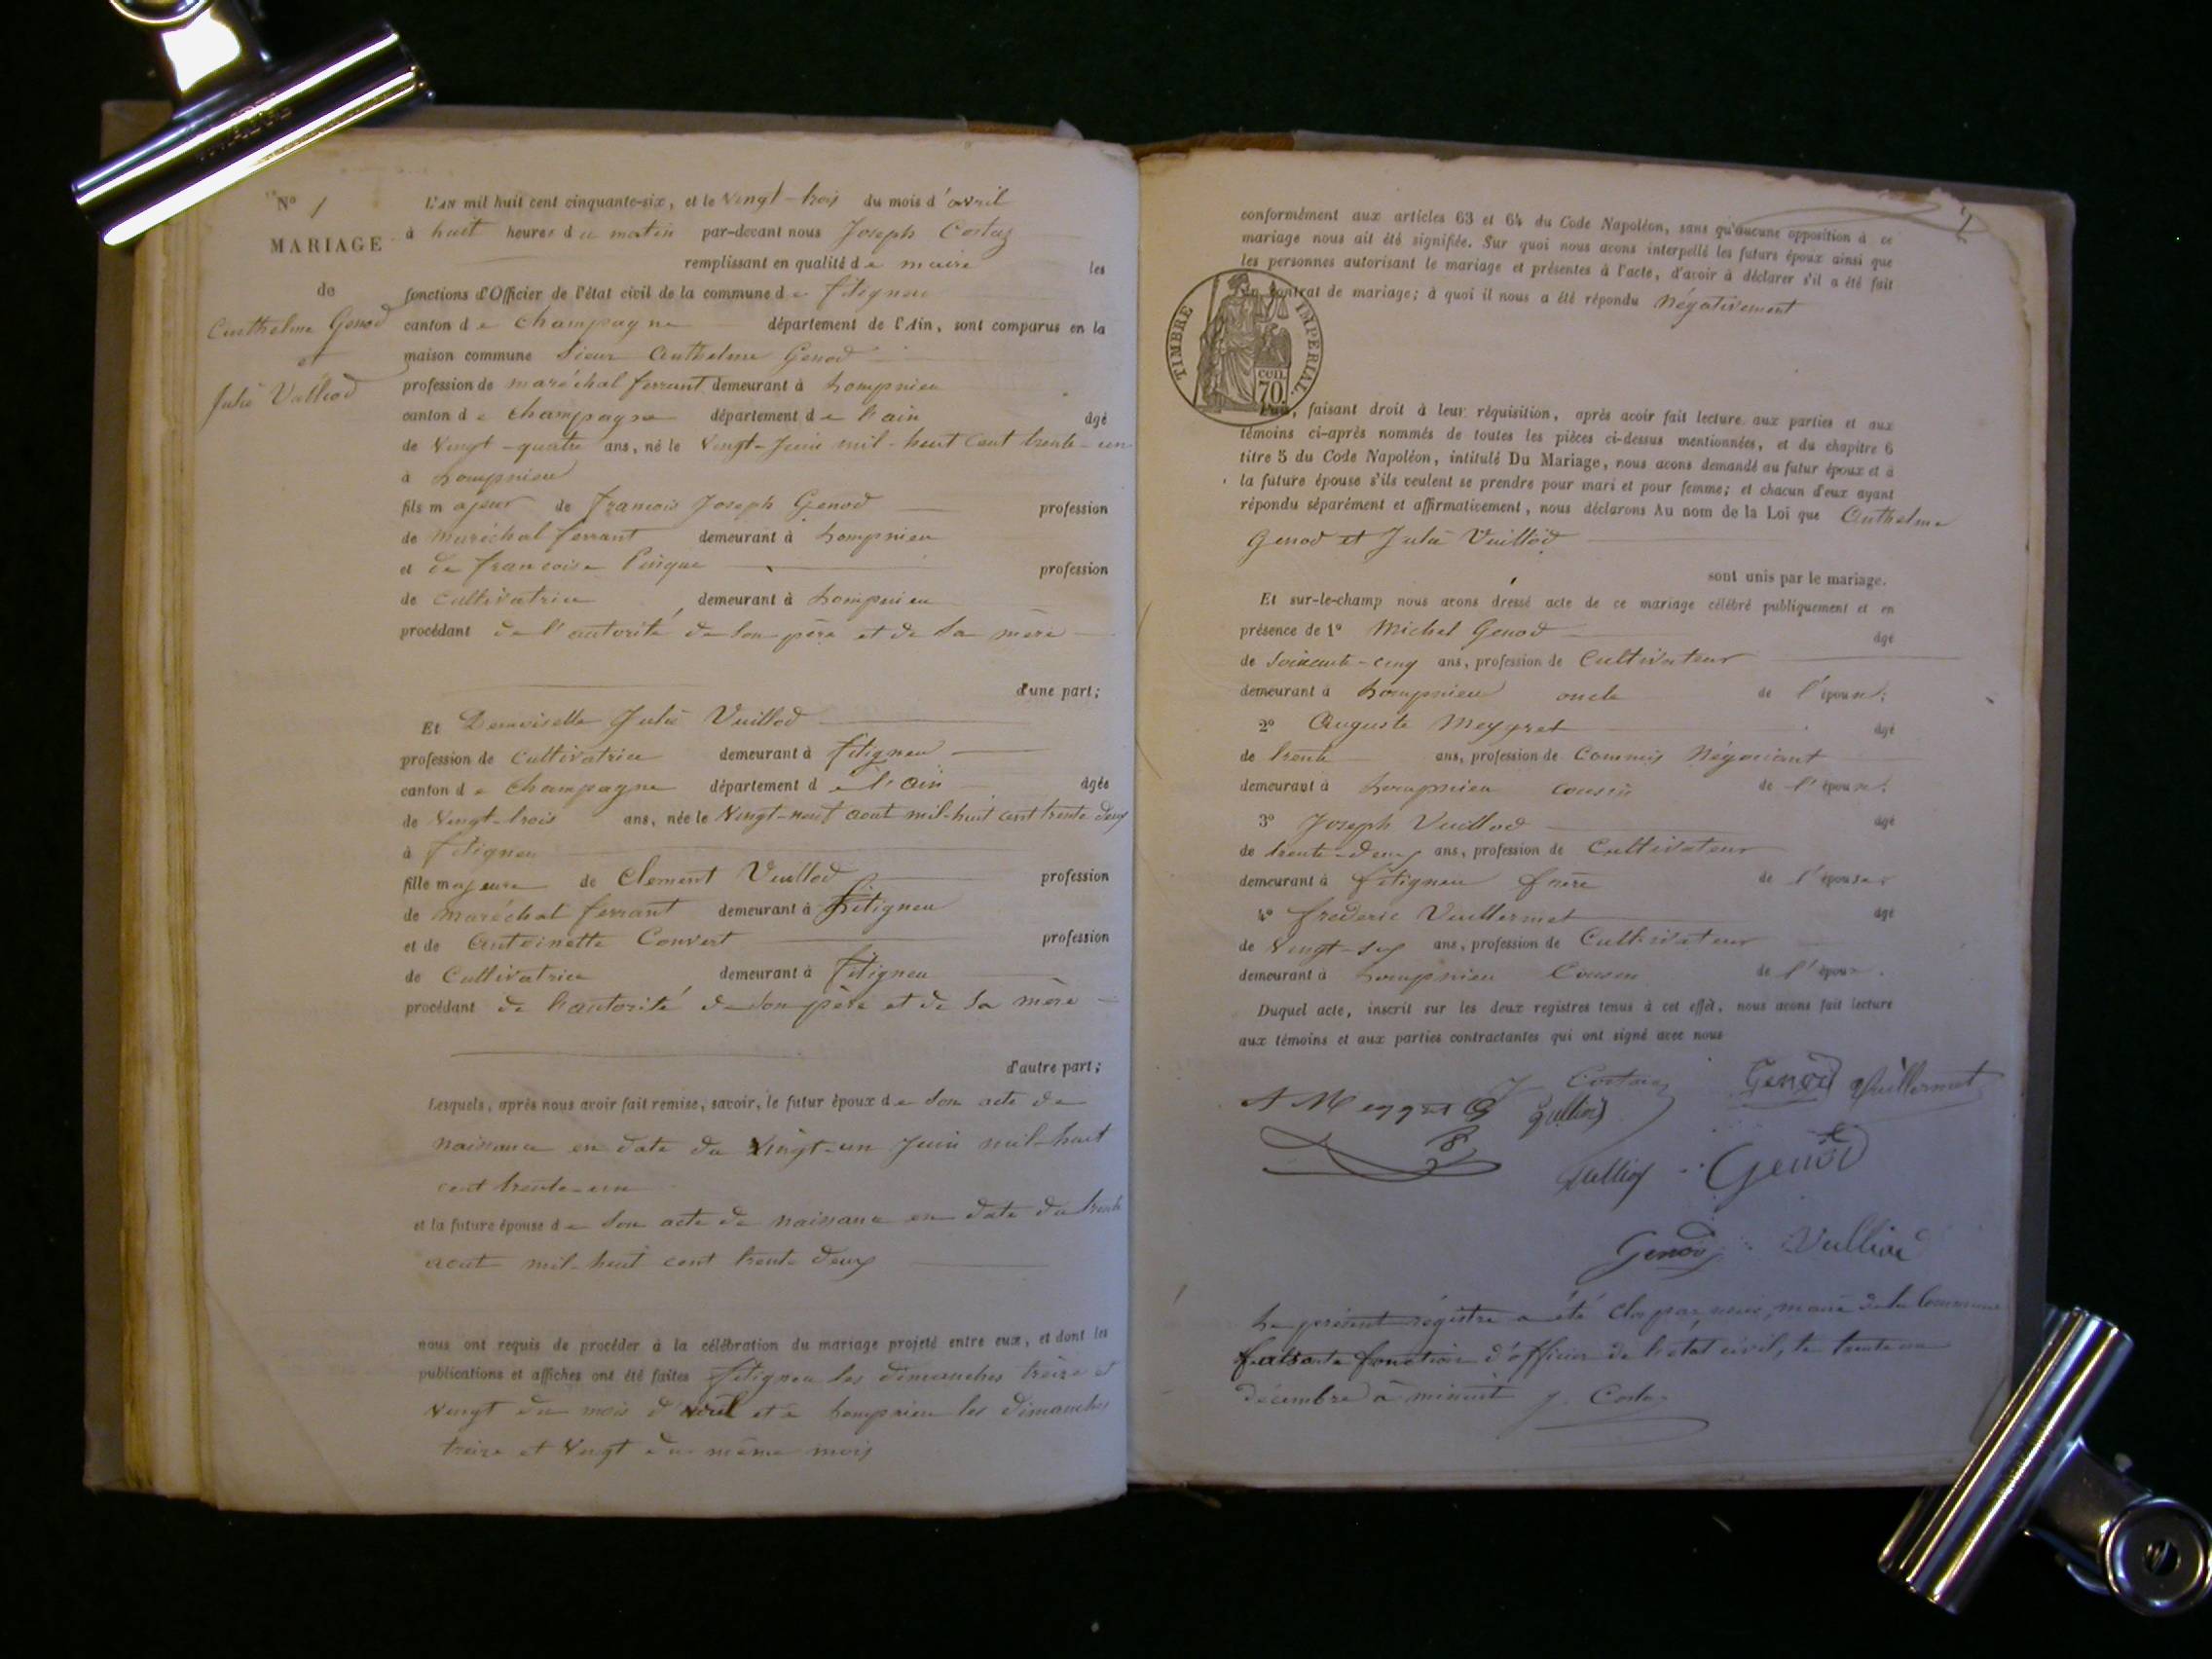 No 1
MARIAGE
de
Anthelme Genod
et
Julie Vulliod
L'AN mil huit cent cinquante-six, et le vingt-trois du mois d'avril
à huit heures du matin par-devant nous Joseph Costaz
remplissant en qualité de maire les
fonctions d'Officier de l'état civil de la commune de fitignieu
canton de champagne département de l'Ain, sont comparus en la
maison commune Sieur Anthelme Genod
profession de maréchal ferrant demeurant à Lompnieu
canton de champagne département de l'ain âgé
de vingt-quatre ans, né le vingt-Juin mil-huit cent trente-un
à Lompnieu
fils majeur de francois Joseph Genod profession
de maréchal ferrant demeurant à Lompnieu
et de francoise profession
de cultivatrice demeurant à Lompnieu
procédant de l'autorité de son père et de sa mère
d'une part;
Et Demoiselle Julie Vuillod
profession de cultivatrice demeurant à fitignieu
canton de champagne département de l'ain âgée
de vingt-trois ans, née le vingt-neuf aout mil-huit cent trente deux
à fitignieu
fille majeure de Clement Vuillod profession
de maréchal ferrant demeurant à fitignieu
et de Antoinette Convert profession
de Cultivatrice demeurant à fitignieu
procédant de l'autorité de son père et de sa mère
d'autre part;
Lesquels, après nous avoir fait remise, savoir, le futur époux de son acte de
naissance en date du vingt-un Juin mil-huit
cent trente-un
et la future épouse de son acte de naissance en date du trente
aout mil-huit cent trente deux
nous ont requis de procéder à la célébration du mariage projeté entre eux, et dont les
publications et affiches ont été faites fitignieu les dimanches treize et
vingt du mois d'avril et à Lompnieu les dimanches
treize et vingt du même mois
conformément aux articles 63 et 64 du Code Napoléon, sans qu'aucune opposition à ce
mariage nous ait été signifiée. Sur quoi nous avons interpellé les futurs époux ainsi que
les personnes autorisant le mariage et présentes à l'acte, d'avoir à déclarer s'il a été fait
un contrat de mariage; à quoi il nous a été répondu Négativement
TIMBRE IMPERIAL.
CUIL
70
faisant droit à leur réquisition, après avoir fait lecture aux parties et aux
témoins ci-après nommés de toutes les pièces ci-dessus mentionnées, et du chapitre 6
titre 5 du Code Napoléon, intitulé Du Mariage, nous avons demandé au futur époux et à
la future épouse s'ils veulent se prendre pour mari et pour femme; et chacun d'eux ayant
répondu séparément et affirmativement, nous déclarons Au nom de la Loi que Anthelme
Genod et Julie Vuillod
sont unis par le mariage.
Et sur-le-champ nous avons dressé acte de ce mariage célébré publiquement et en
présence de 1° Michel Genod âgé
de soixante-cinq ans, profession de Cultivateur
demeurant à Lompnieu oncle de l'époux;
2° Auguste Meygret âgé
de trente ans, profession de Commis Négociant
demeurant à Lompnieu cousin de l'époux;
3° Joseph Vuillod âgé
de trente-deux ans, profession de Cultivateur
demeurant à fitignieu frère de l'épouse;
4° frederic Vuillermet âgé
de vingt-six ans, profession de Cultivateur
demeurant à Lompnieu Cousin de l'époux.
Duquel acte, inscrit sur les deux registres tenus à cet effet, nous avons fait lecture
aux témoins et aux parties contractantes qui ont signé avec nous
J Costaz Genod Vuillermet
A Meygret
Genod
Genod Vulliod
Le présent régistre a été clos par nous, maire de la Commune
faisant fonction d'officier de l'etat civil, le trente un
décembre à minuit J. Costaz